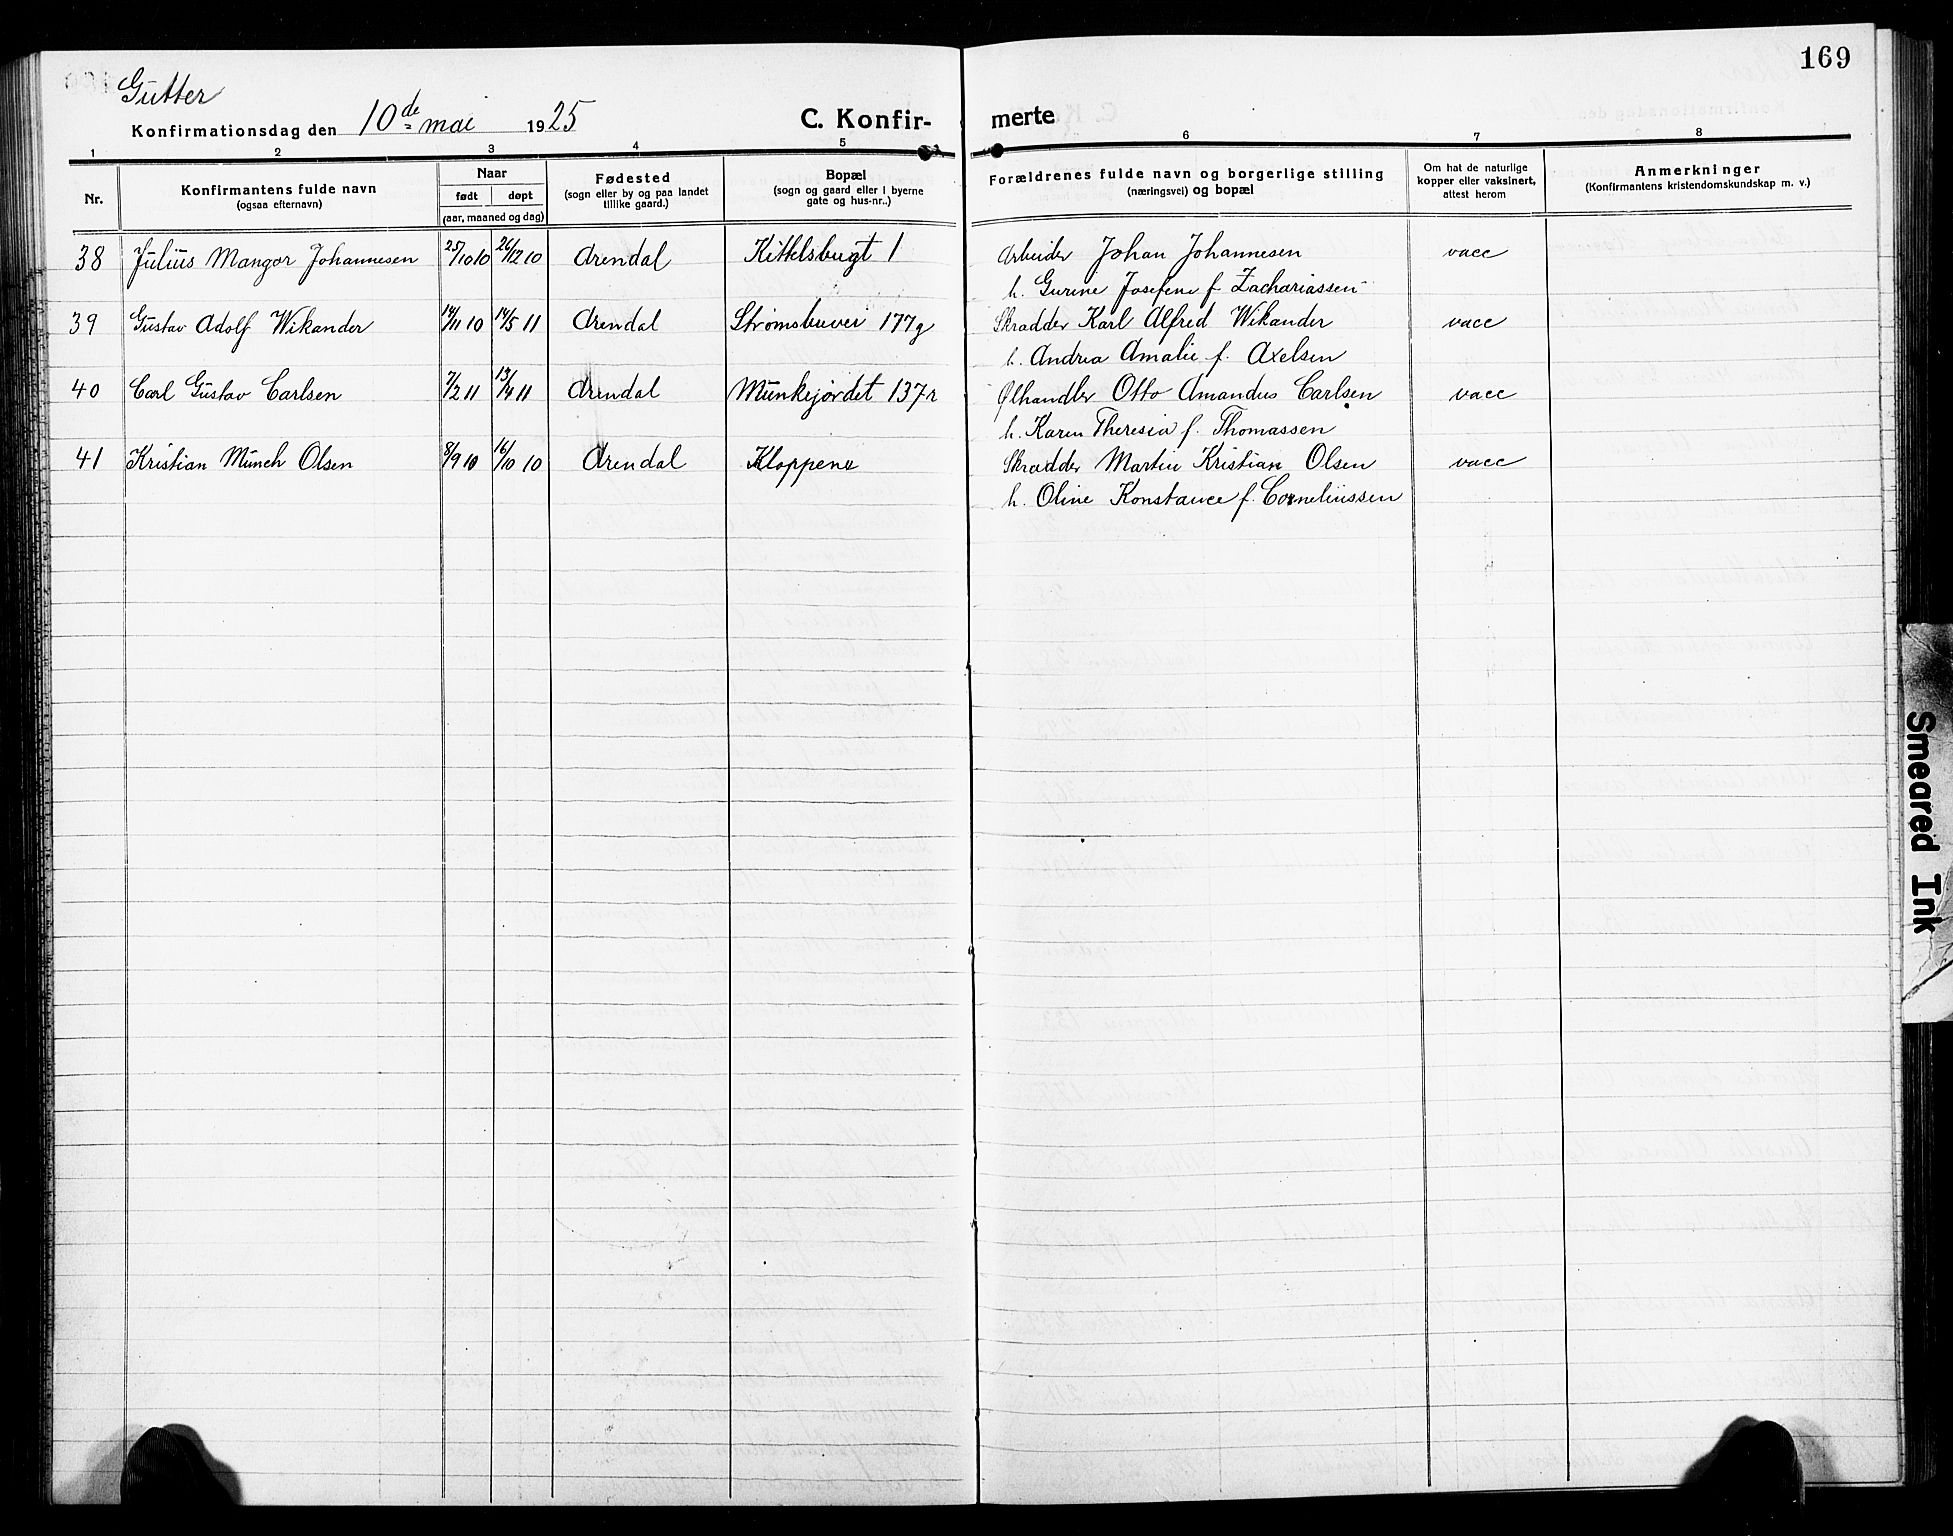 169
Gutter
Konfirmationsdag den 10de mai 1925
C. Konfir-
merte
1 2 3 4 5 6 7 8
Nr.
Konfirmantens fulde navn
(ogsaa efternavn)
Naar
født døpt
(aar, maaned og dag)
Fødested
(sogn eller by og paa landet
tillike gaard.)
Bopæl
(sogn og gaard eller i byerne
gate og hus-nr..)
Forældrenes fulde navn og borgerlige stilling
(næringsvei) og bopæl
Om hat de naturlige
kopper eller vaksinert,
attest herom
Anmerkninger
(Konfirmantens kristendomskundskap m. v.)
38 Julius Mangor Johannesen 25/10 10 26/12 10 Arendal Kittelsbugt 1 Arbeider Johan Johannesen vacc
h. Gurine Josefine f. Zachariassen
39 Gustav Adolf Wikander 14/11 10 14/5 11 Arendal Strømsbuvei 177g Skrædder Karl Alfred Wikander vacc
h. Andrea Amalie f. Axelsen
40 Carl Gustav Carlsen 7/2 11 13/4 11 Arendal Munkejordet 137r Ølhandler Otto Amandus Carlsen vacc
h. Karen Theresia f. Thomassen
41 Kristian Münch Olsen 8/9 10 16/10 10 Arendal Kloppene Skrædder Martin Kristian Olsen vacc
h. Oline Konstance f. Corneliussen
Smeared Ink